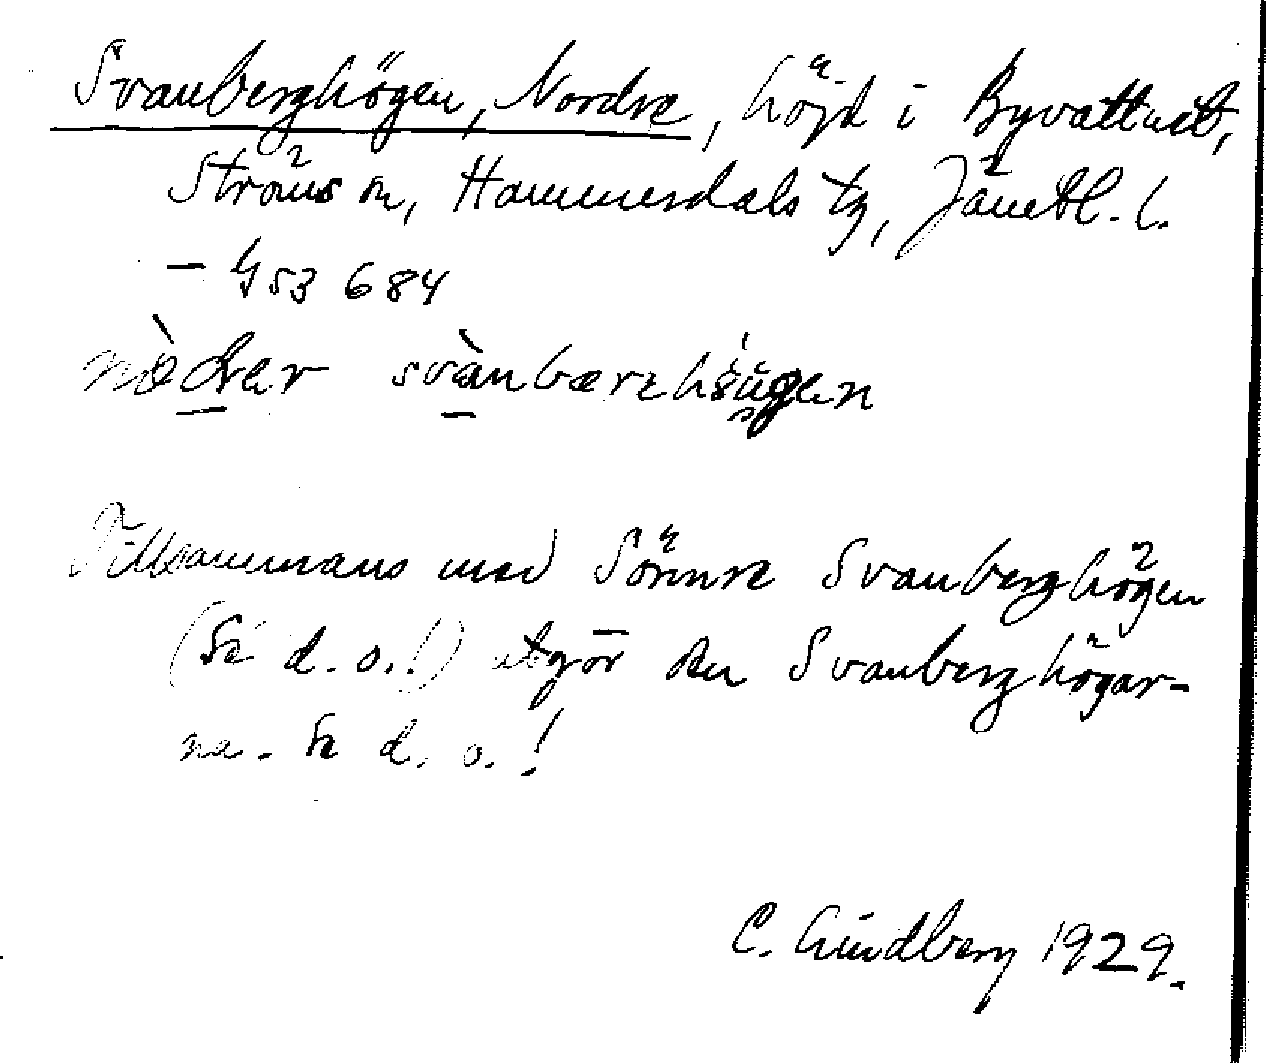 Svanberghögen, Nordre, höjd i Byvattnet,
Ströms sn, Hammerdals tg, Jämtl. l.
– G 53 684
svànbærzhöugen
Tillsammans med Sörnre Svanberghögen
(Se d. o.!) utgör den Svanberghögar-
na. Se d. o.!
C. Lindberg 1929.